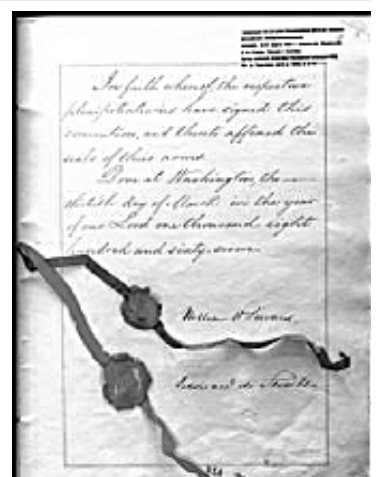 In faith whereof, the respective
plenipotentiaries have signed this
convention, and thereto affixed the
seals of their arms.
Done at Washington, the
thirtieth day of March in the year
of our Lord one thousand eight
hundred and sixty-seven.
William H Seward
Edouard de Stoeckl